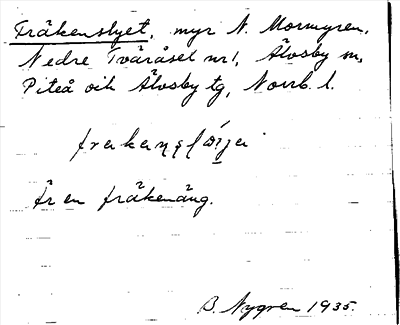 Fräkenslyet, myr N. Mormyren,
Nedre Tväråsel nr 1, Älvsby sn,
Piteå och Älvsby tg, Norrb. l.
Är en fräkenäng.
B. Nygren 1935.